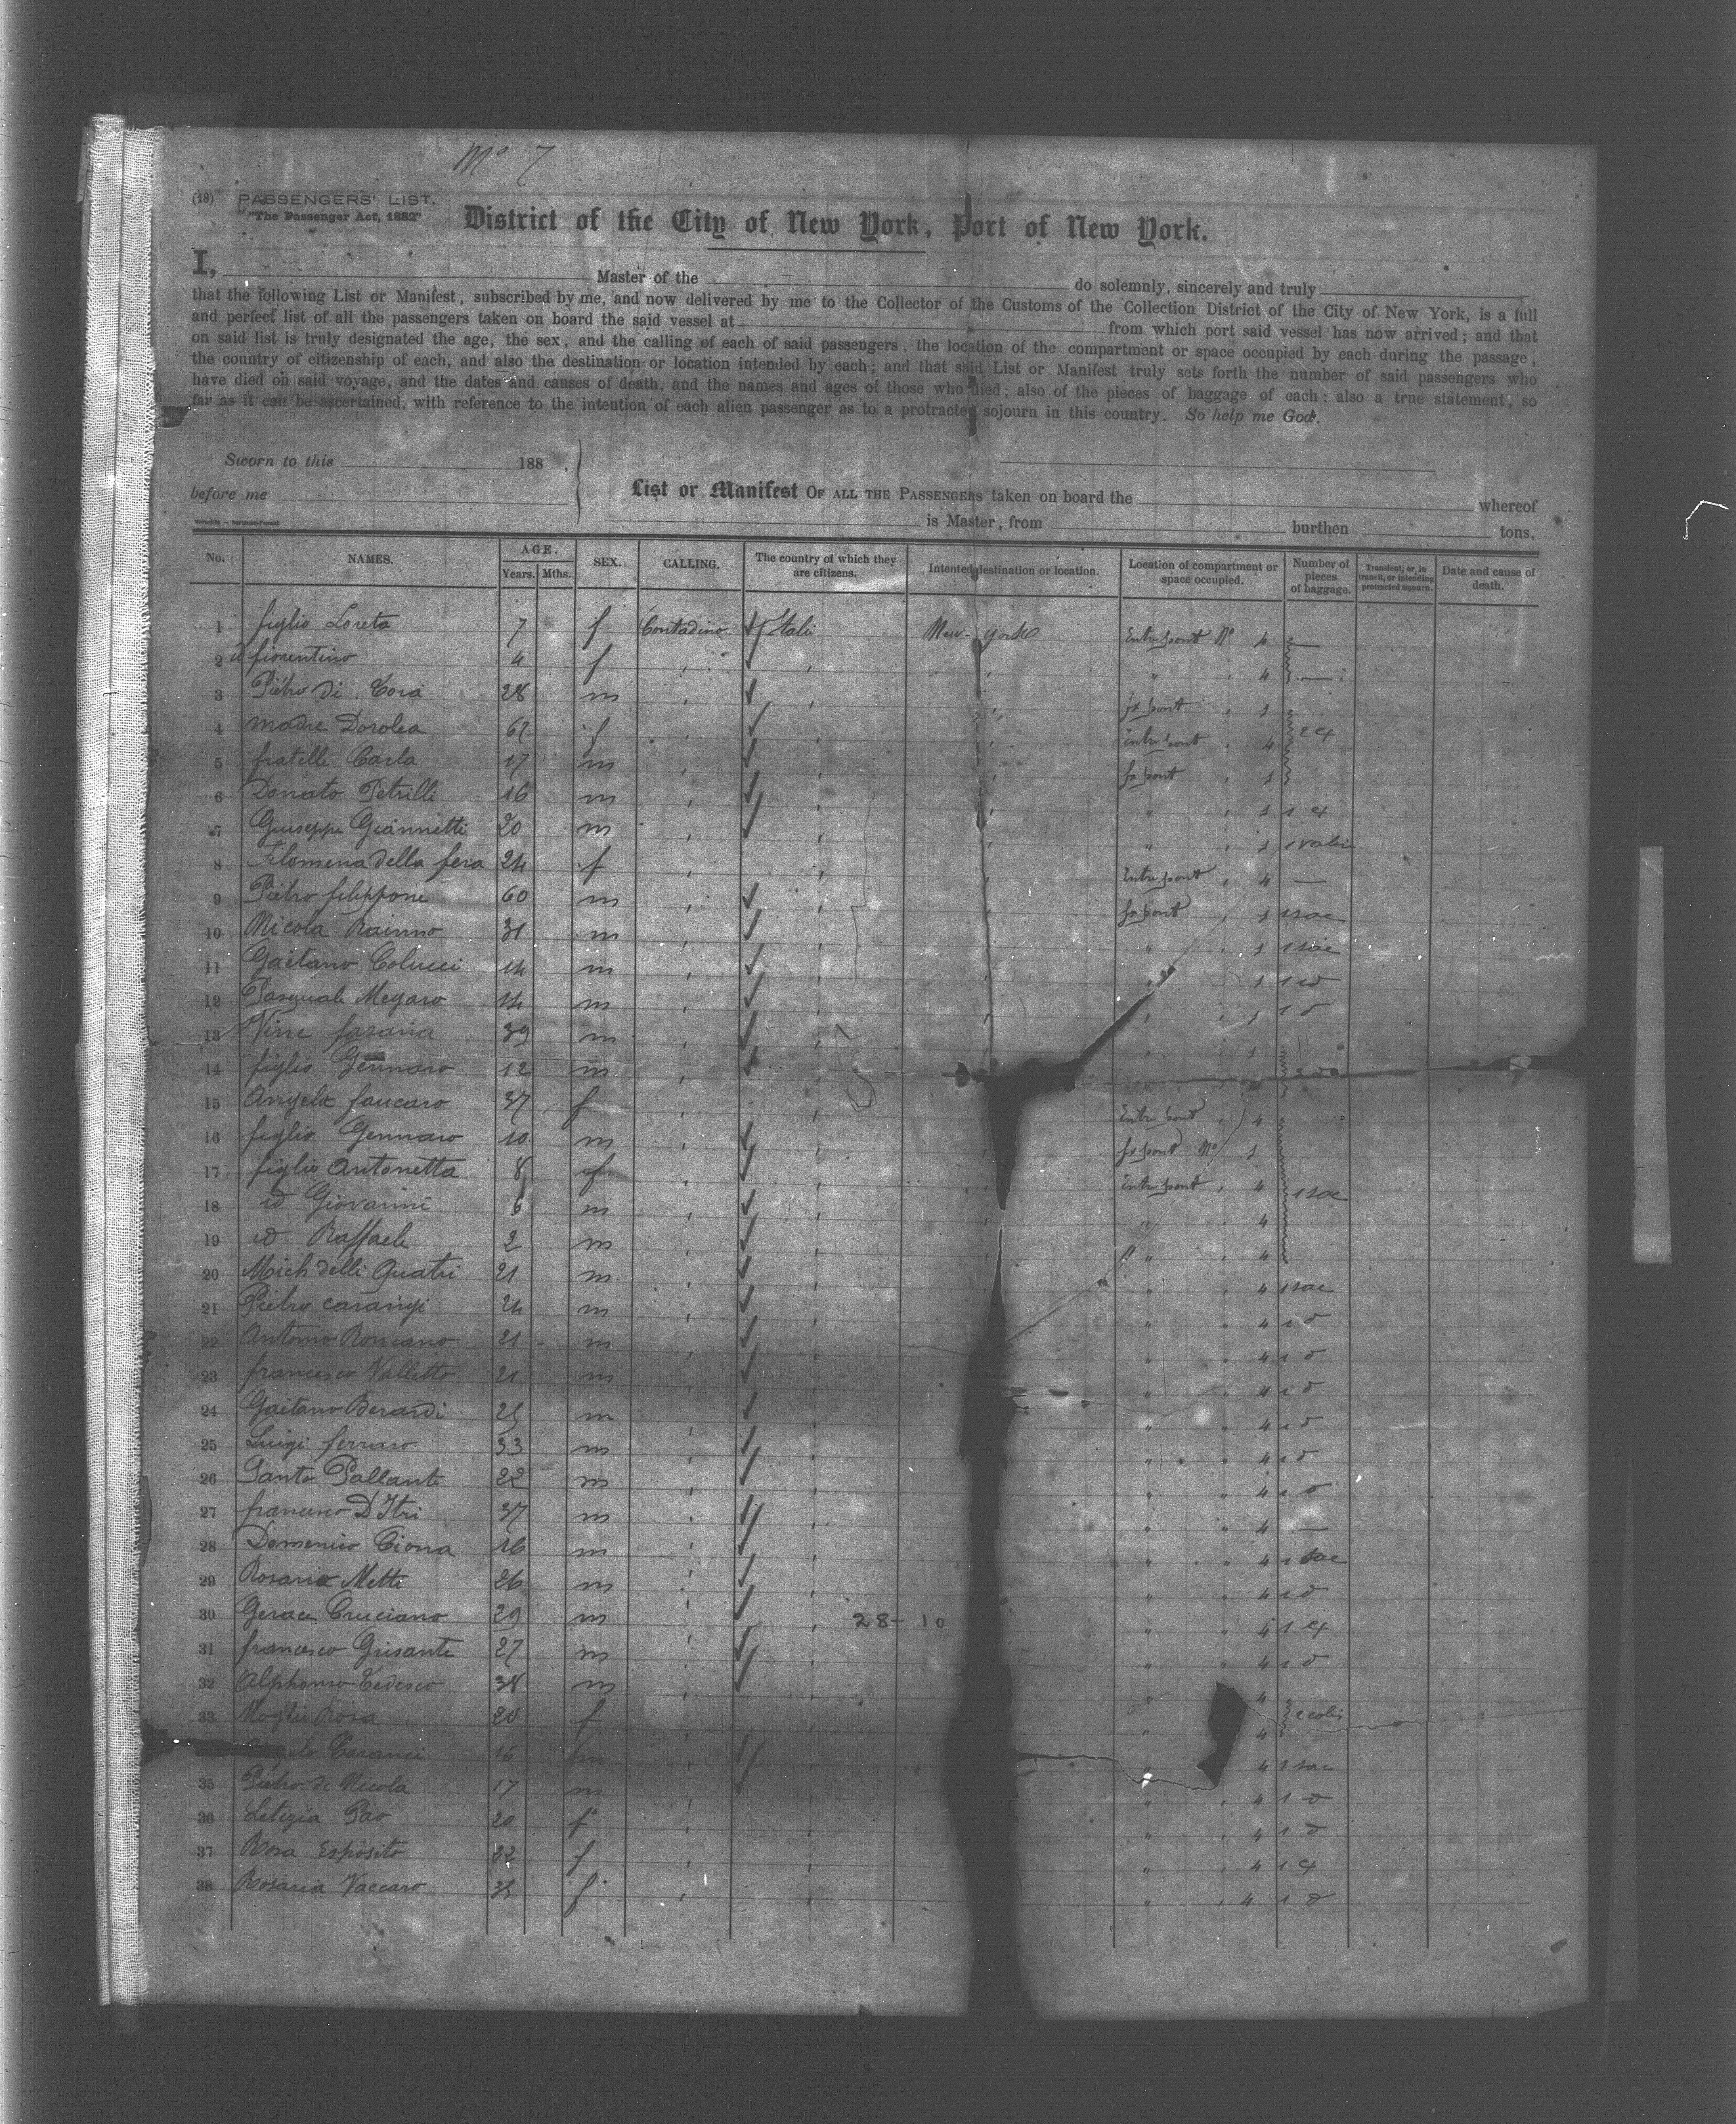 No 7
(18) PASSENGERS' LIST.
"The Passenger Act, 1882"
District of the City of New York, Port of New York.
I, Master of the do solemnly, sincerely and truly
that the following List or Manifest, subscribed by me, and now delivered by me to the Collector of the Customs of the Collection District of the City of New York, is a full
and perfect list of all the passengers taken on board the said vessel at from which port said vessel has now arrived; and that
on said list is truly designated the age, the sex, and the calling of each of said passengers, the location of the compartment or space occupied by each during the passage,
the country of citizenship of each, and also the destination or location intended by each; and that said List or Manifest truly sets forth the number of said passengers who
have died on said voyage, and the dates and causes of death, and the names and ages of those who died; also of the pieces of baggage of each; also a true statement, so
far as it can be ascertained, with reference to the intention of each alien passenger as to a protracted sojourn in this country. So help me God.
Sworn to this 188 ,
before me
List or Manifest OF ALL THE PASSENGERS taken on board the whereof
is Master, from burthen tons,
No. NAMES. AGE. Years. Mths. SEX. CALLING. The country of which they are citizens. Intented destination or location. Location of compartment or space occupied. Number of pieces of baggage. Transient, or in transit, or intending protracted sojourn. Date and cause of death.
1 figlio Loreta 7 f Contadino Itali New-york Entrepont No 4 —
2 id fiorentino 4 f " 4 —
3 Pietro Di Cora 28 m fx pont 1
4 madre Dorotea 67 f Entrepont 4 2 
5 fratelli Carla 17 m fx pont 1
6 Donato Petrilli 16 m " 1 1
7 Giuseppe Giannetti 20 m " 1 1
8 Filomena della fera 24 f Entrepont 4 —
9 Pietro filippone 60 m fx pont 1 1 sac
10 Nicola Rainno 31 m " 1 1 sac
11 Gaetano Colucci 14 m " 1 1 id
12 Pasquale Megaro 14 m " 1 1 d
13 Vinc fasaria 39 m " 1
14 figlio Gennaro 12 m
15 Angela faucaro 37 f Entrepont 4
16 figlio Gennaro 10 m fx pont No 1
17 figlio Antonetta 8 f Entrepont 4 1 sac
18 id Giovanni 6 m " 4
19 id Raffaele 2 m " 4
20 Mich delli Quatri 21 m 4 1 sac
21 Pietro carangi 24 m " 4 1 d
22 Antonio Roncano 21 m " 4 1 d
23 francesco Valletto 21 m " 4 1 d
24 Gaetano Berardi 25 m " 4 1 d
25 Luigi ferraro 33 m " 4 1 d
26 Santo Pallante 22 m " 4 1 d
27 francesco D'Itri 37 m " 4 —
28 Domenico Ciona 16 m " 4 1 sac
29 Rosario Metti 26 m " 4 1 d
30 Gerace Cruciano 29 m 28-10 " 4 1
31 francesco Grisante 27 m " 4 1 d
32 Alphonso Tedesco 38 m " 4
33 Moglie Rosa 20 f " 4 2 colis
Caranci 16 m 4 1 sac
35 Pietro de Nicola 17 m " 4 1 d
36 Letizia Pao 20 f " 4 1 d
37 Rosa Esposito 22 f " 4 1
38 Rosaria Vaccaro 35 f " 4 1 d